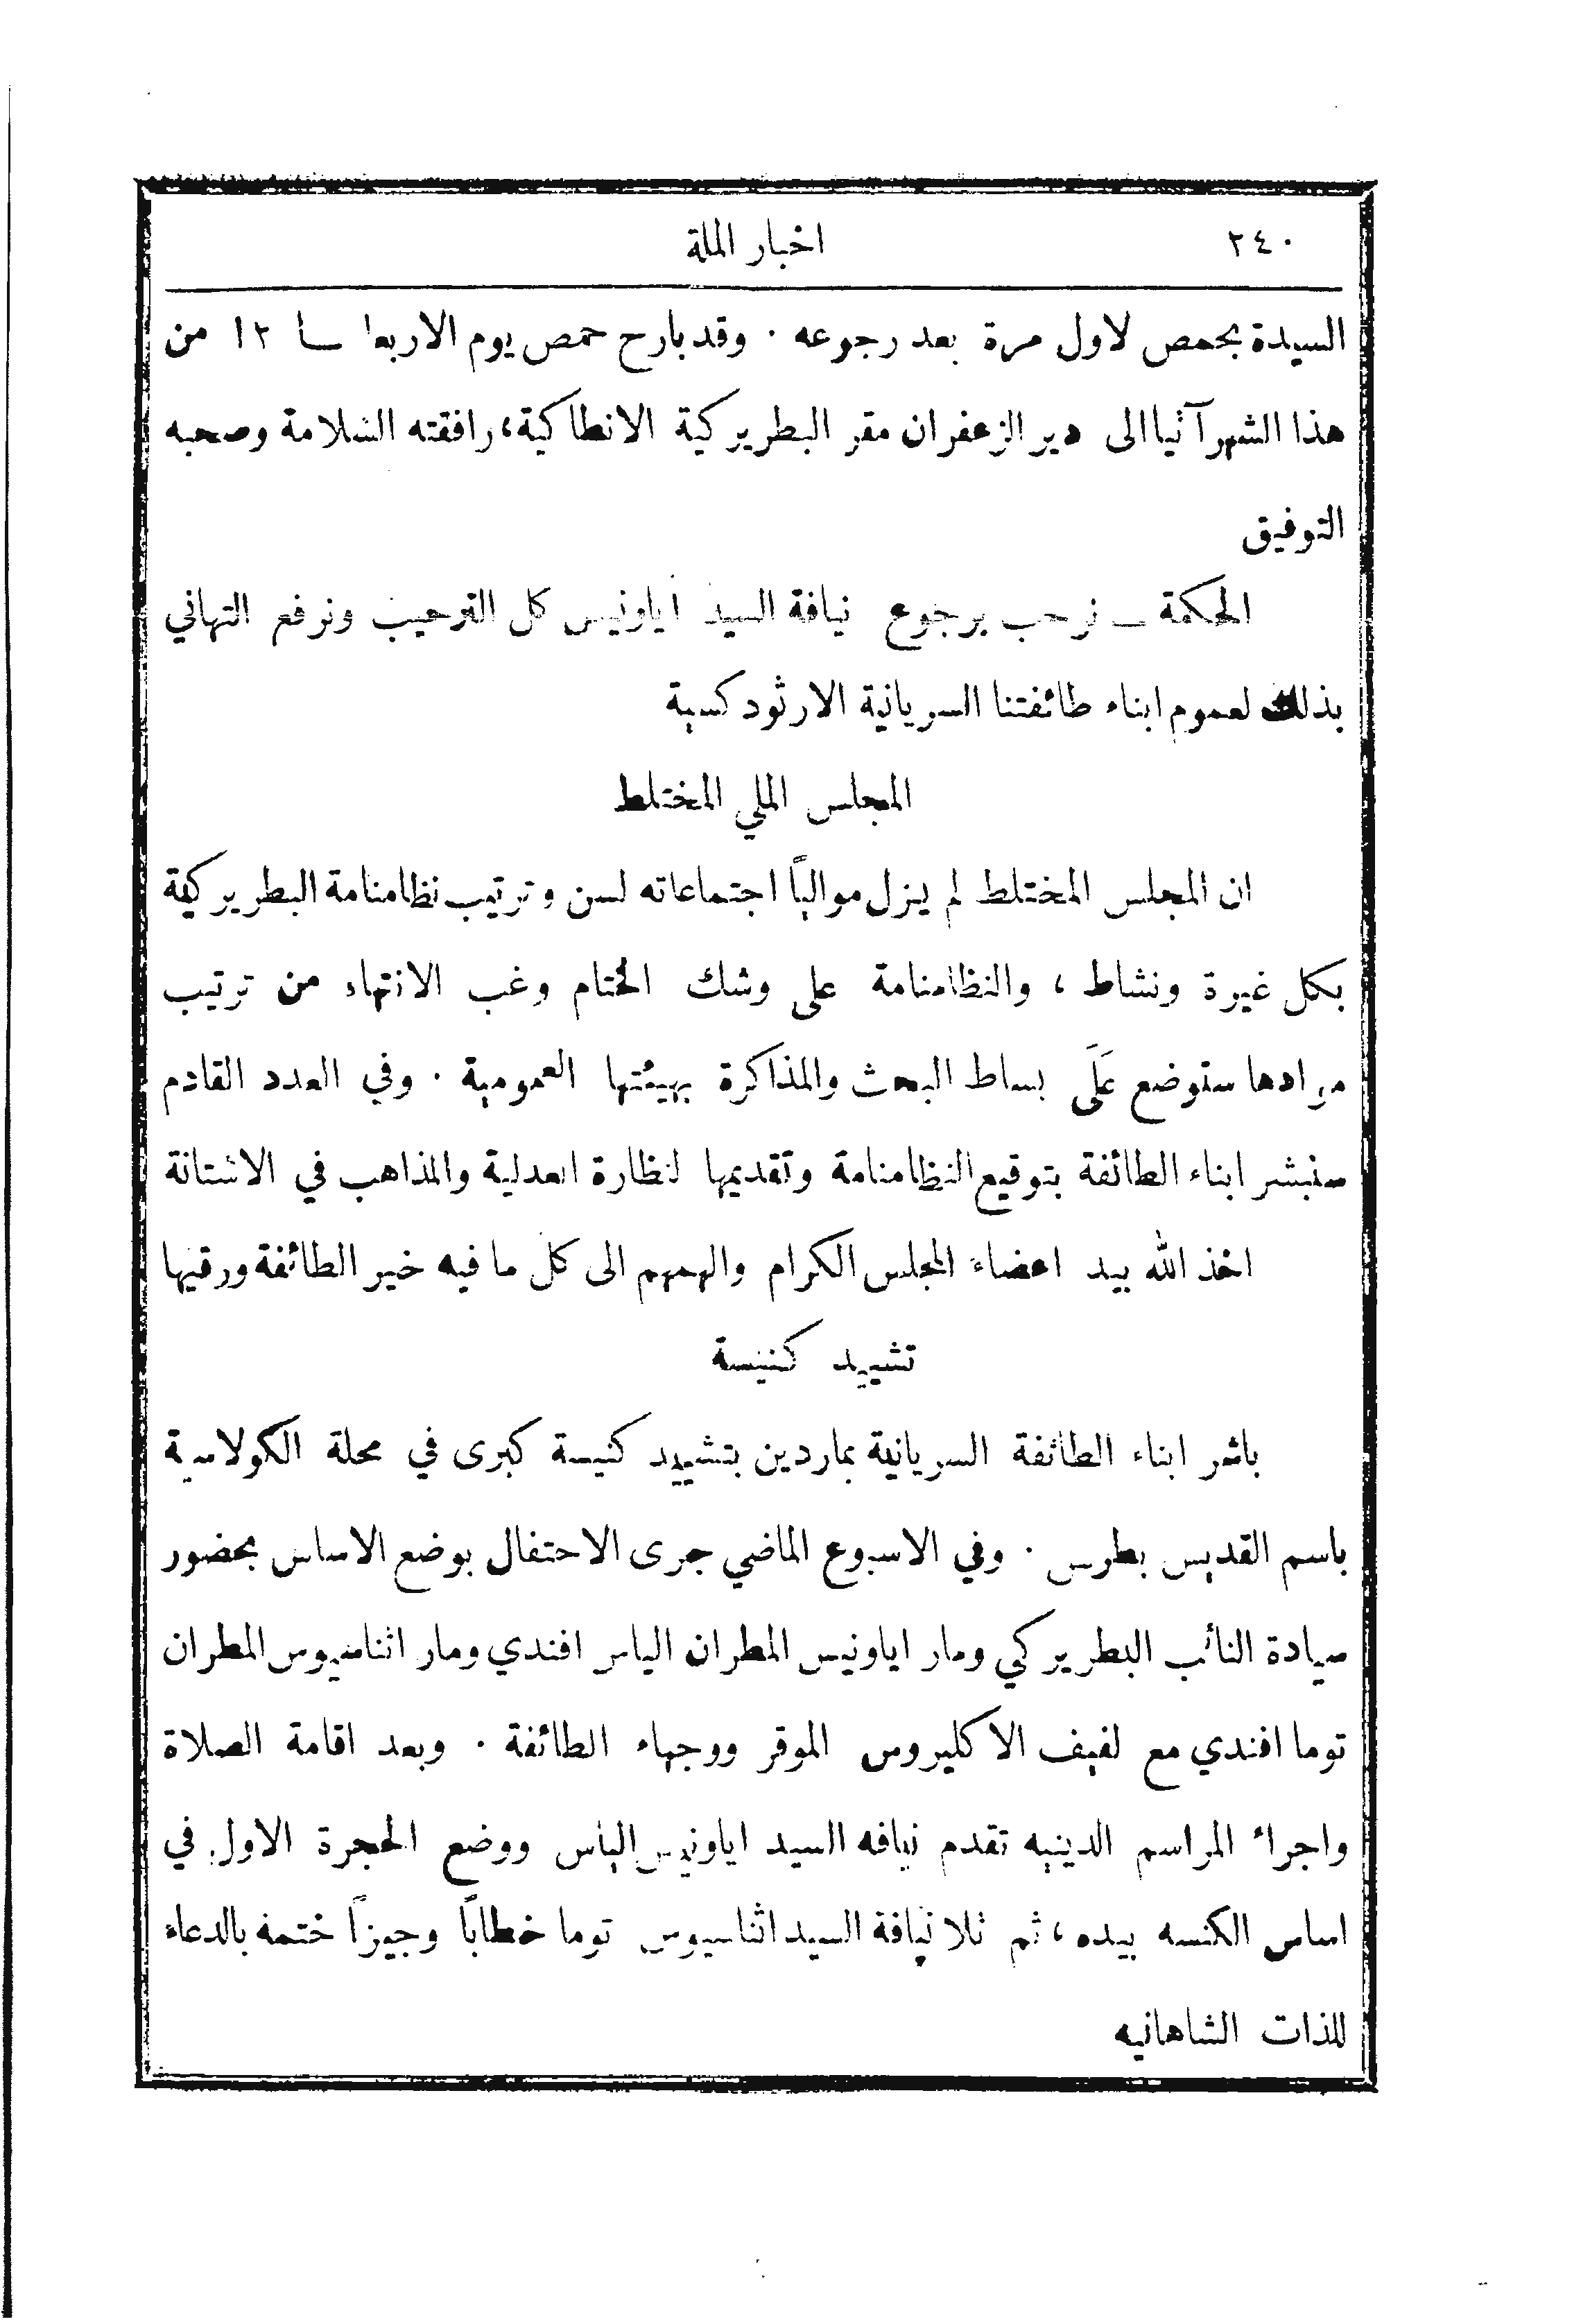 ٢٤٠ اخبار الملة
السيدة بحمص لاول مرة بعد رجوعه ٠ وقد بارح حمص يوم الاربعا ١٢ من
هذا الشهر آتيا الى دير الزعفران مقر البطريركية الانطاكية، رافقته السلامة وصحبه
التوفيق
الحكمة ــ نرحب برجوع نيافة السيد اياونيس كل الترحيب ونرفع التهاني
بذلك لعموم ابناء طائفتنا السريانية الارثودكسية
المجلس الملي المختلط
ان المجلس المختلط لم يزل موالياً اجتماعاته لسن وترتيب نظامنامة البطريركية
بكل غيرة ونشاط ، والنظامنامة على وشك الختام وغب الانتهاء من ترتيب
موادها ستوضع عَلَى بساط البحث والمذاكرة بهيئتها العمومية ٠ وفي العدد القادم
سنبشر ابناء الطائفة بتوقيع النظامنامة وتقديمها لنظارة العدلية والمذاهب في الاستانة
اخذ الله بيد اعضاء المجلس الكرام والهمهم الى كل ما فيه خير الطائفة ورقيها
تشييد كنيسة
باشر ابناء الطائفة السريانية بماردين بتشييد كنيسة كبرى في محلة الكولاسية
باسم القديس بطرس ٠ وفي الاسبوع الماضي جرى الاحتفال بوضع الاساس بحضور
سيادة النائب البطريركي ومار اياونيس المطران الياس افندي ومار اثناسيوس المطران
توما افندي مع لفيف الاكليروس الموقر ووجهاء الطائفة ٠ وبعد اقامة الصلاة
واجراء المراسم الدينيه تقدم نيافه السيد اياونيس الياس ووضع الحجرة الاولى في
اساس الكنسه بيده ، ثم تلا نيافة السيد اثناسيوس توما خطاباً وجيزاً ختمه بالدعاء
للذات الشاهانيه